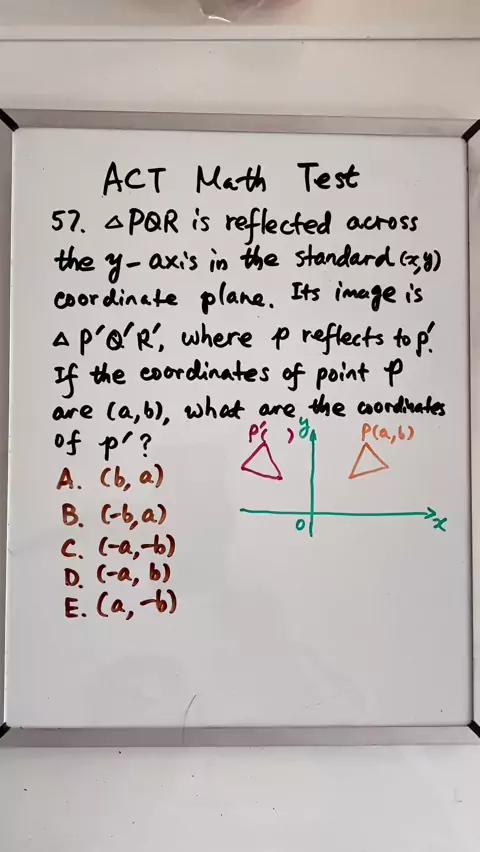 ACT Math Test
57. △PQR is reflected across
the y-axis in the standard (x,y)
coordinate plane. Its image is
△P'Q'R', where P reflects to P'.
If the coordinates of point P
are (a,b), what are the coordinates
of P'?
A. (b, a)
B. (-b, a)
C. (-a, -b)
D. (-a, b)
E. (a, -b)
P'( )
y
P(a,b)
0
x